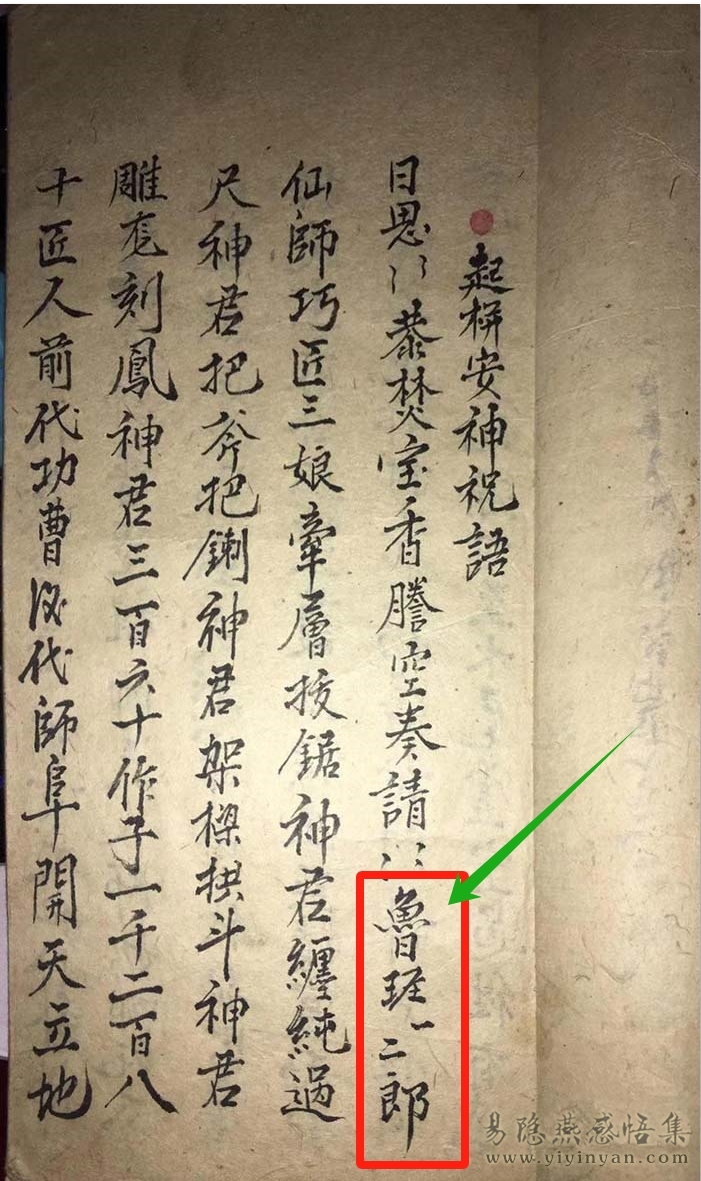 起栟安神祝語
日恩〻恭焚宝香謄空奏請〻魯班一二郎
仙師巧匠三娘牽層拔鋸神君纏純過
尺神君把斧把鍘神君架樑拱斗神君
雕刻鳳神君三百六十作子一千二百八
十匠人前代功曹后代師阜開天立地
易隐燕感悟集
www.yiyinyan.com